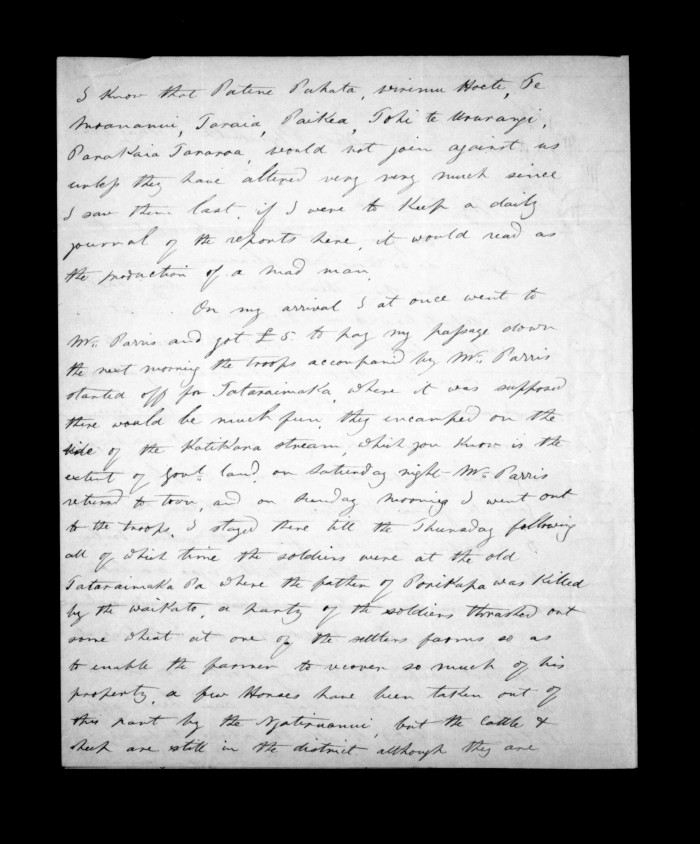 I know that Patene Puhata, Wiremu Hoete, Te
Moananui, Taraia, Paikea, Tohi te Ururangi,
Parakaia Tararoa, would not join against us
unless they have altered very very much since
I saw them last, if I were to keep a daily
journal of the reports here, it would read as
the production of a mad man.
On my arrival I at once went to
Mr. Parris and got £5 to pay my passage down
the next morning the troops accompanied by Mr. Parris
started off for Tataraimaka, where it was supposed
there would be much fun, they encamped on the
side of the Katikara stream, which you know is the
extent of Govt. land, on Saturday night Mr. Parris
returned to town, and on Sunday morning I went out
to the troops, I stayed there till the Thursday following
all of which time the soldiers were at the old
Tataraimaka Pa where the father of Porikapa was killed
by the Waikato, a party of the soldiers thrashed out
some wheat at one of the settlers farms so as
to enable the farmer to recover so much of his
property, a few Horses have been taken out of
this part by the Ngatiruanui, but the Cattle &
sheep are still in the district although they are